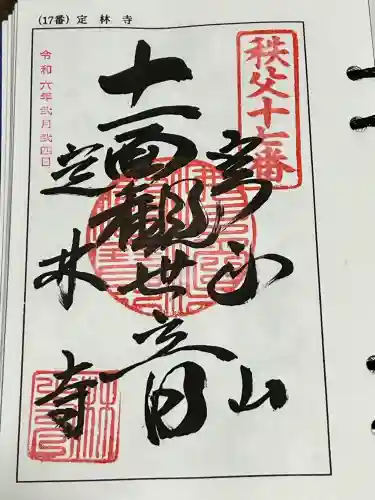 (17番) 定林寺
秩父十七番
十一面観世音
定林寺
令和六年弐月弐四日